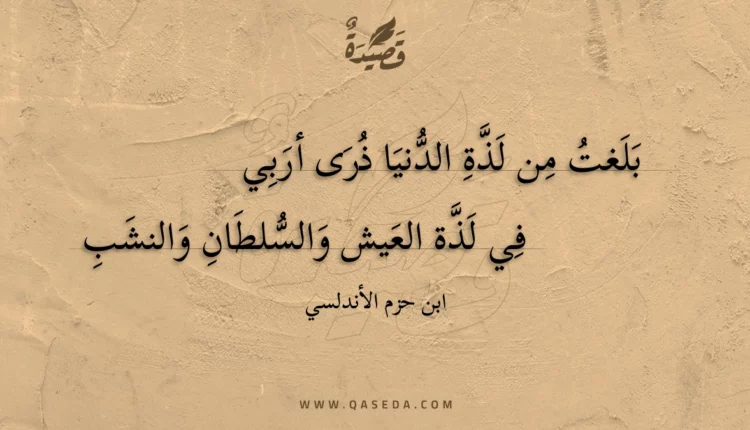 قَصِيْدَةٌ
بَلَغتُ مِن لَذَّةِ الدُّنيَا ذُرَى أرَبِي
فِي لَذَّة العَيش وَالسُّلطَانِ وَالنشَبِ
ابن حزم الأندلسي
WWW.QASEDA.COM